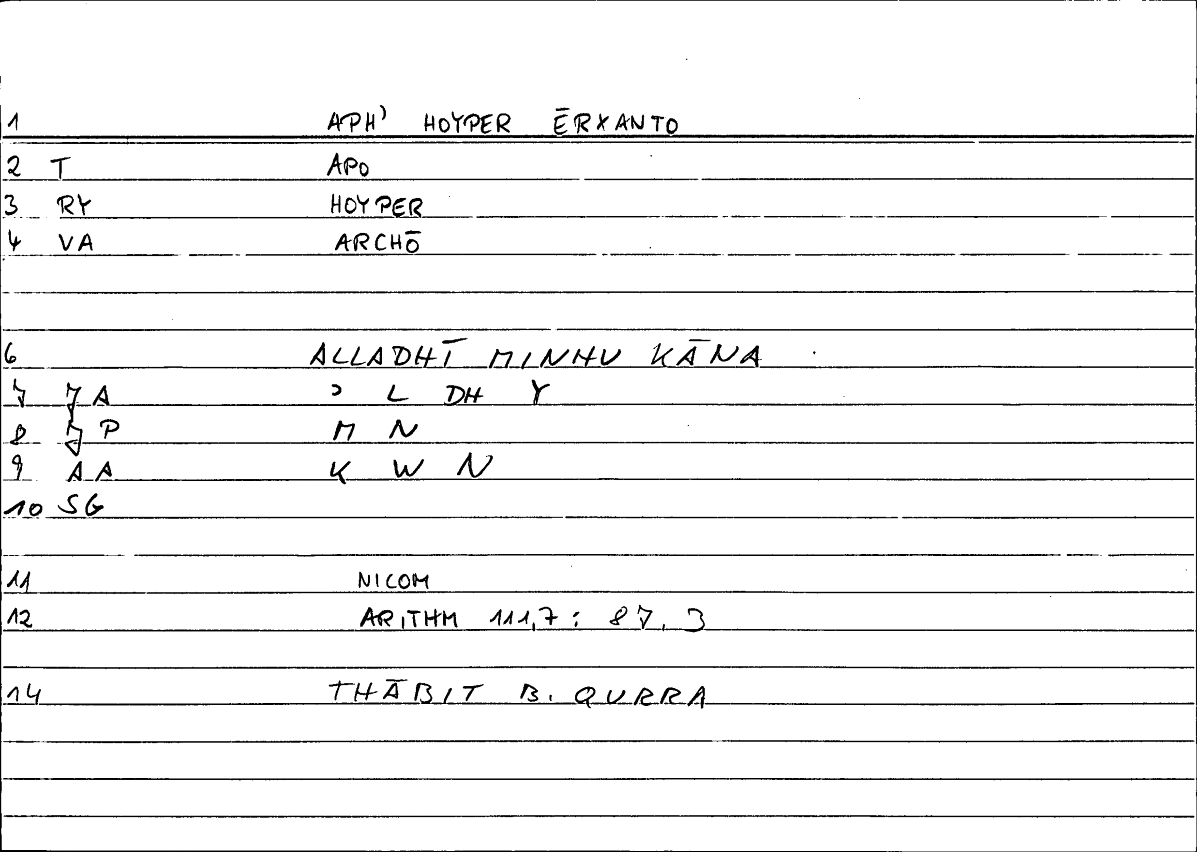 1 APH' HOYPER ĒRXANTO
2 T APO
3 RY HOYPER
4 VA ARCHŌ
6 ALLADHĪ MINHU KĀNA
7 JA ʾ L DH Y
8 JP M N
9 AA K W N
10 SG
11 NICOM
12 ARITHM 111,7 : 87.3
14 THĀBIT B. QURRA